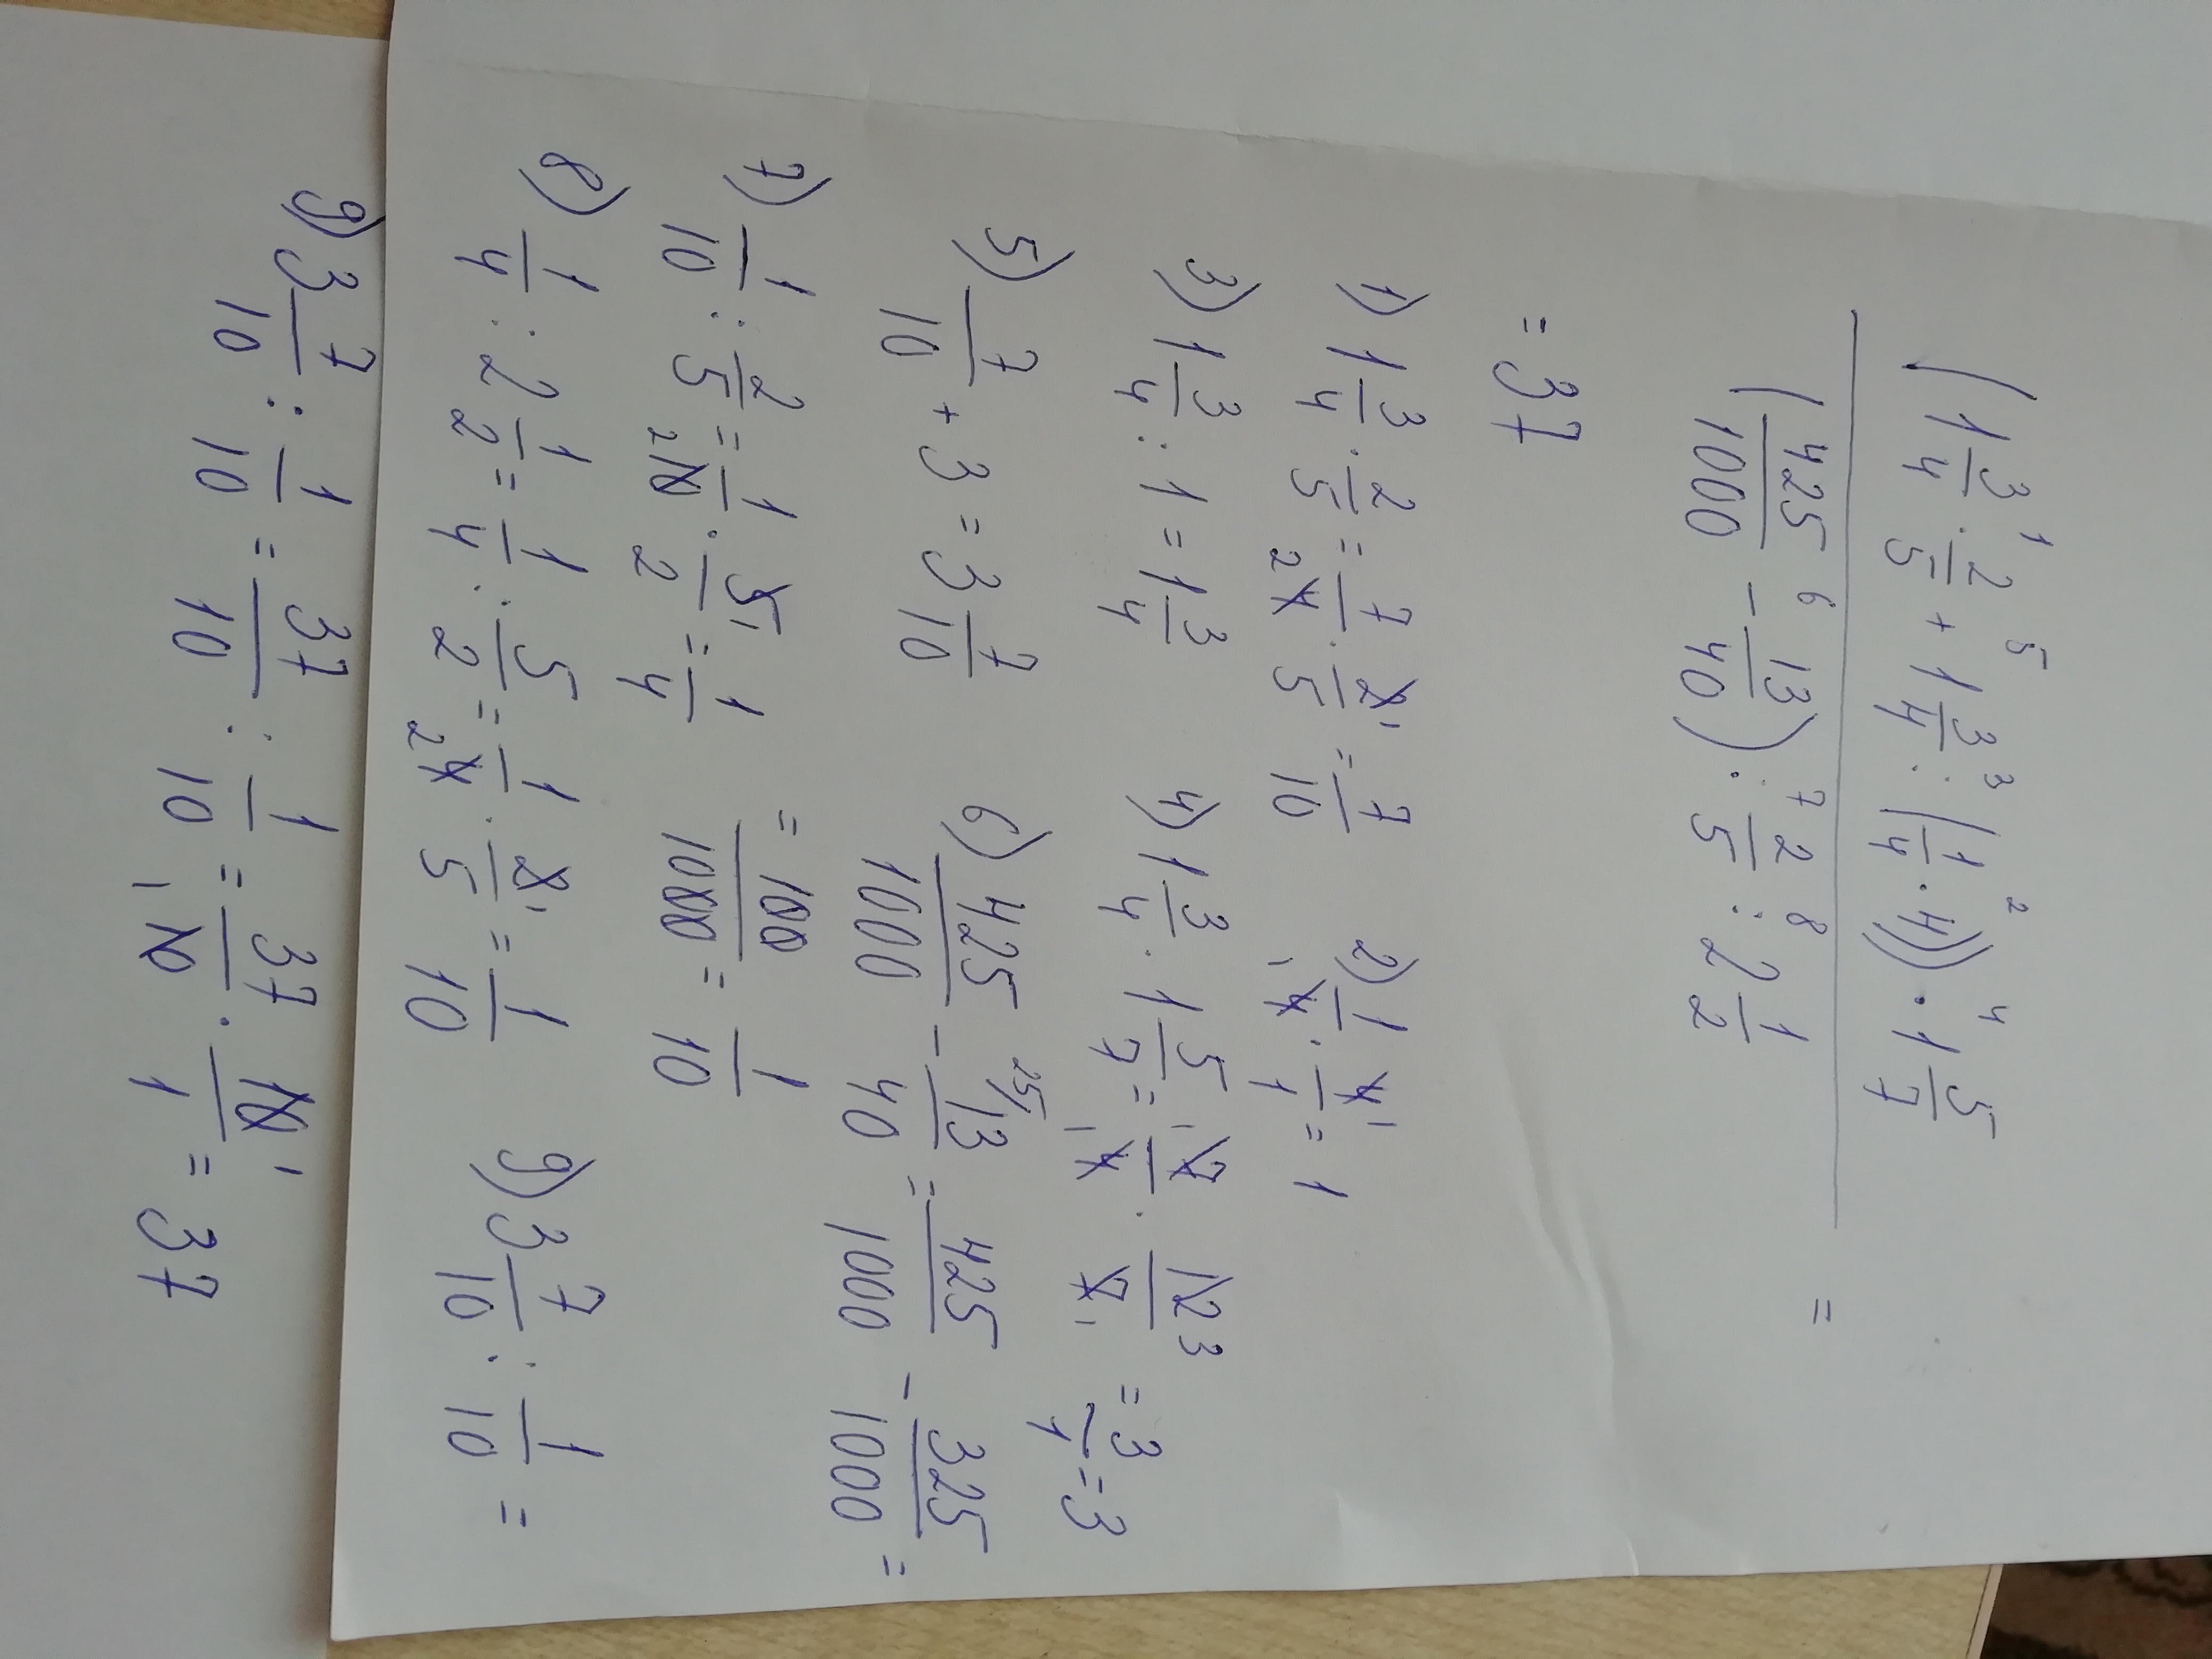 (1 3/4 · 2/5 + 1 3/4 : (1/4 · 4)) · 1 5/7
1 5 3 2 4
(425/1000 - 13/40) : 2/5 : 2 1/2 =
6 7 8
= 37
1) 1 3/4 · 2/5 = 7/4 · 2/5 = 7/10 2) 1/4 · 4/1 = 1
3) 1 3/4 : 1 = 1 3/4 4) 1 3/4 · 1 5/7 = 7/4 · 12/7 = 3/1 = 3
5) 7/10 + 3 = 3 7/10 6) 425/1000 - 13/40 = 425/1000 - 325/1000 =
= 100/1000 = 1/10
7) 1/10 : 2/5 = 1/10 · 5/2 = 1/4
8) 1/4 : 2 1/2 = 1/4 : 5/2 = 1/4 · 2/5 = 1/10 9) 3 7/10 : 1/10 =
9) 3 7/10 : 1/10 = 37/10 : 1/10 = 37/10 · 10/1 = 37